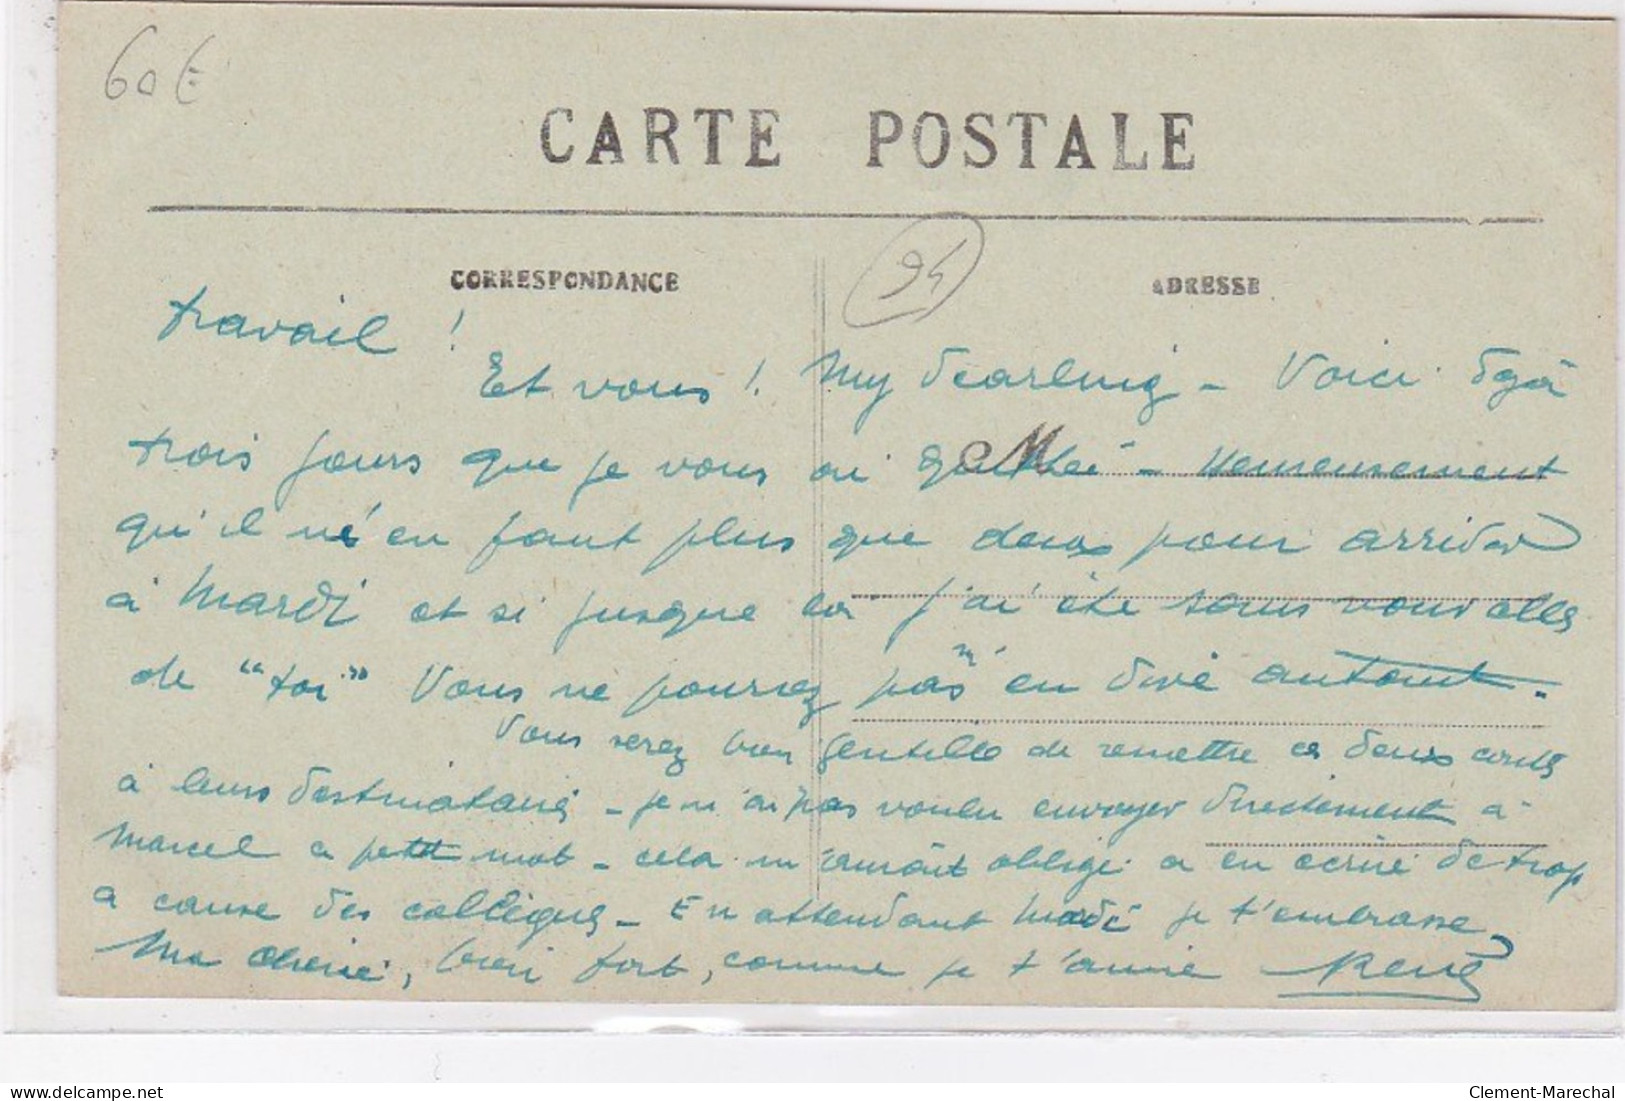 60 €
CARTE POSTALE
CORRESPONDANCE
94
ADRESSE
travail !
Et vous ! My dearling - Voici dejà
trois jours que je vous ai quitteé - Heureusement
qu'il n'en faut plus que deux pour arriver
à Mardi et si jusque là j'ai été sans nouvelles
de "toi" Vous ne pourrez pas m'en dire autant.
Vous serez bien gentille de remettre ces deux cartes
à leurs destinataires - je n'ai pas voulu envoyer directement à
Marcel ce petit mot - cela m'aurait obligé a en ecrire de trop
a cause des collègues - En attendant Mardi je t'embrasse,
Ma cherie, bien fort, comme je t'aime René
Clement-Marechal